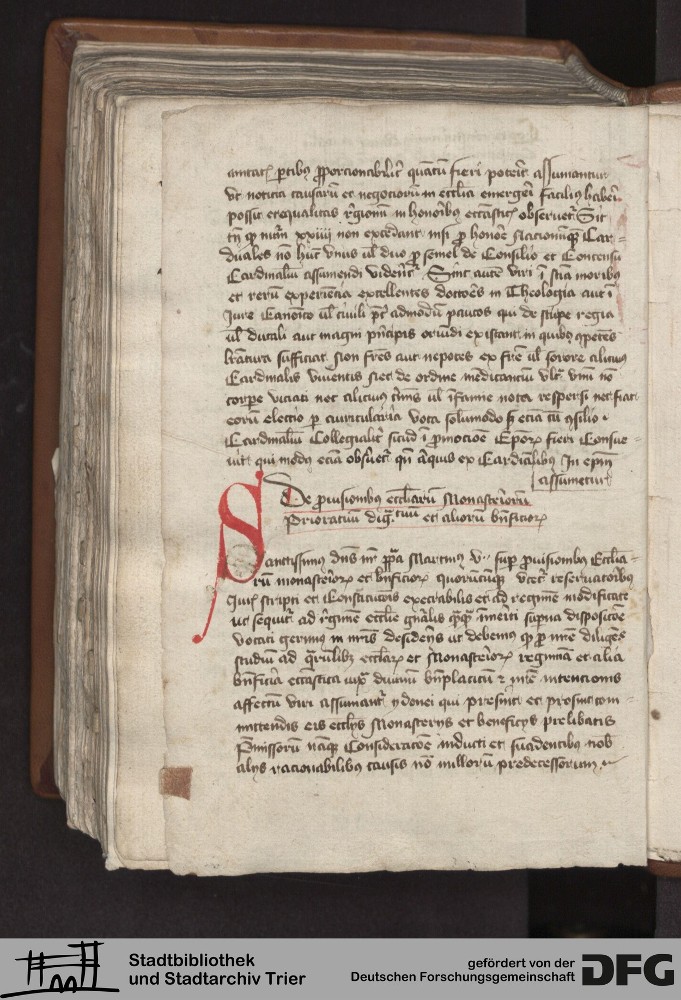 partibus proporcionabiliter quantum fieri poterit assumantur
ut noticia causarum et negociorum in ecclesia emergen facilius haberi
possit et equalitas regionum in honoribus ecclesiasticis observetur Sic
tn qz numerum xxiiii non excedant nisi pro honore Nacionum que Car=
dinales non hunt unus vel duo pro semel de Consilio et Consensu
Cardinalium assumendi viderentur Sint autem viri in scientia moribus
et rerum experiencia excellentes doctores in Theologia aut in
Jure Canonico vel civili preter admodum paucos qui de stirpe regia
vel ducali aut magni principis oriundi existant in quibus competens
litteratura sufficiat Non fratres aut nepotes ex fratre vel sorore alicuius
Cardinalis viventis nec de ordine mendicancium ultra unum non
corpore viciati nec alicuius criminis vel infamie nota respersi nec fiat
eorum electio per auricularia vota solummodo sed eciam cum consilio
Cardinalium Collegialiter sicud in promocione Episcoporum fieri Consue=
vit qui modus eciam observetur quando aliquis ex Cardinalibus In episcopum
assumetur
De provisionibus ecclesiarum Monasteriorum
Prioratuum dignitatum et aliorum beneficiorum
Sanctissimus dns nr papa Martinus V super provisionibus Ecclesia=
rum monasteriorum et beneficiorum quorumcumque utetur reservacionibus
Juris scripti et Constitucionis execrabilis et ad regimen modificate
ut sequitur ad regimen ecclesie generalis quamquam immeriti superna disposicione
vocati gerimus in nostris desideriis ut debemus quod per nostre diligencie
studium ad quarumlibet ecclesiarum et Monasteriorum regimina et alia
beneficia ecclesiastica iuxta divinum beneplacitum et nostre intencionis
affectum viri assumantur ydonei qui presint et prosint com=
mittendis eis ecclesiis Monasteriis et beneficiis prelibatis
Premissorum namque Consideracione inducti et suadentibus nobis
aliis racionabilibus causis nonnullorum predecessorum
Stadtbibliothek
und Stadtarchiv Trier
gefördert von der
Deutschen Forschungsgemeinschaft
DFG